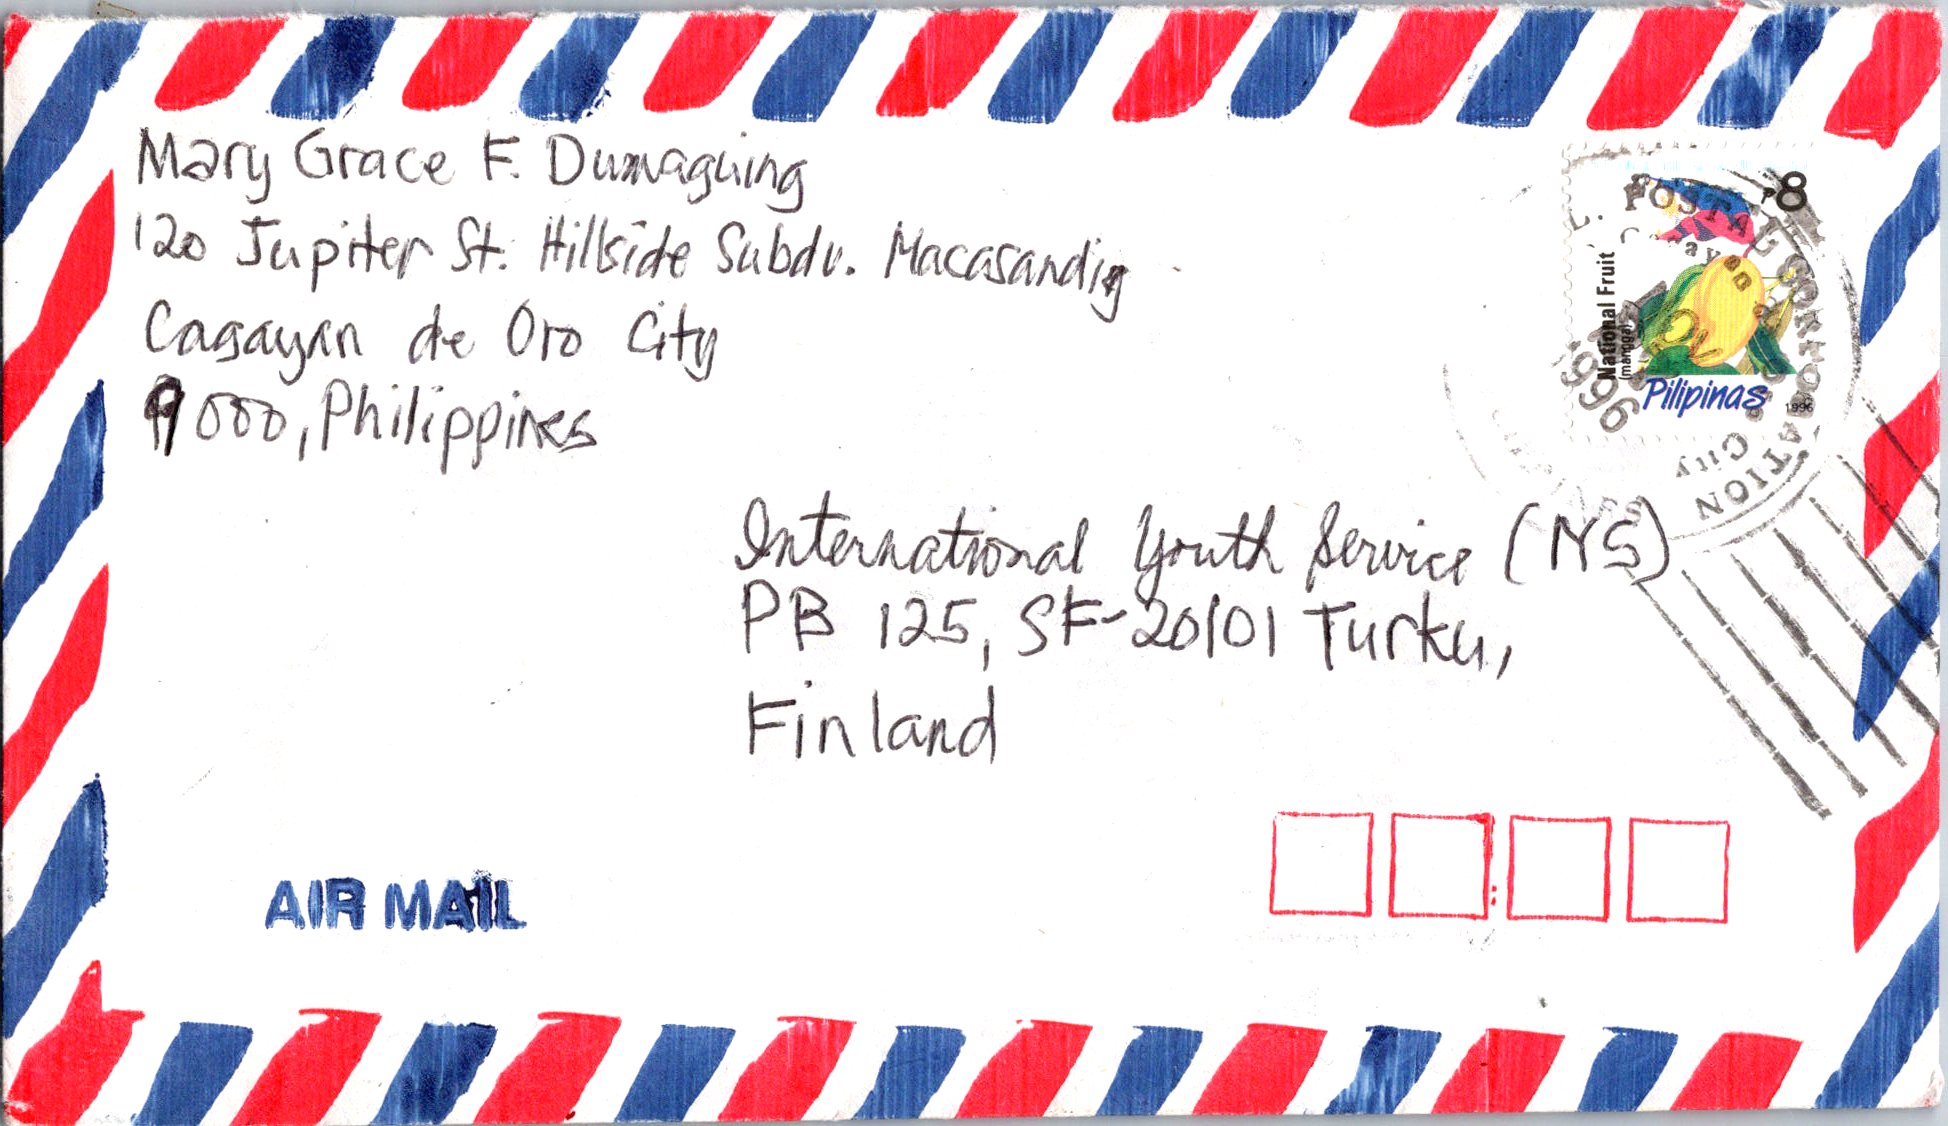 Mary Grace F. Dumaguing
120 Jupiter St. Hillside Subdv. Macasandig
Cagayan de Oro City
9000, Philippines
₱8
National Fruit
(mangga)
Pilipinas
1996
POSTAL CORPORATION
Cagayan de Oro City
NOV
1996
International Youth Service (IYS)
PB 125, SF-20101 Turku,
Finland
AIR MAIL